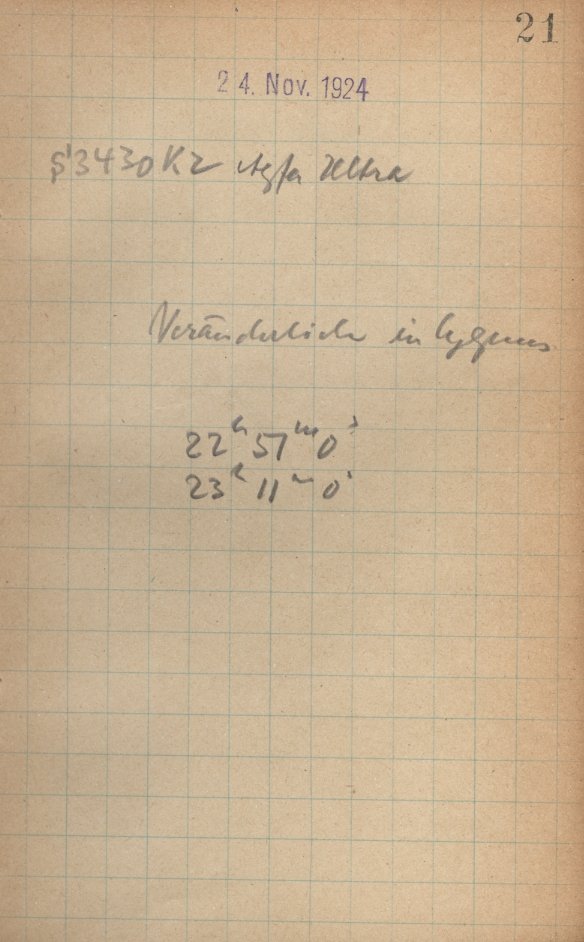 21
24. Nov. 1924
S'3430 K2 Agfa Ultra
Veränderliche in Cygnus
22ʰ 57ᵐ 0ˢ
23ʰ 11ᵐ 0ˢ